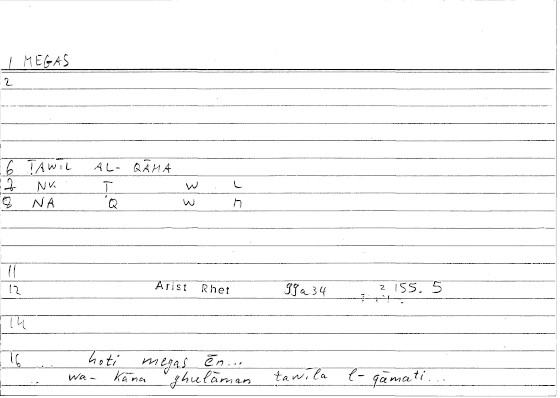 1 MEGAS
2
6 ṬAWĪL AL-QĀMA
7 NK Ṭ W L
8 NA Q W M
11
12 Arist Rhet 99a34 155.5
14
16 .. hoti megas ēn...
.. wa-kāna ghulāman tawīla l-qāmati...